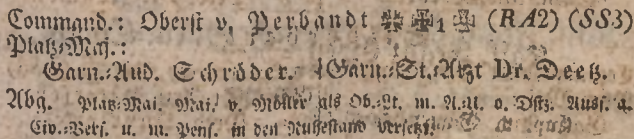 Command.: Oberſt v. Perbandt 1 (RA2) (SS3)
Platz-Maj.:
Garn.-Aud. Schröder. Garn.-St.-Arzt Dr. Deetz.
Abg. Platz-Maj. Maj. v. Möller als Ob.-Lt. m. A.-U. o. Dſtz. Ausſ. a. Civ.-Verſ. u. m. Penſ. in den Ruheſtand verſetzt.